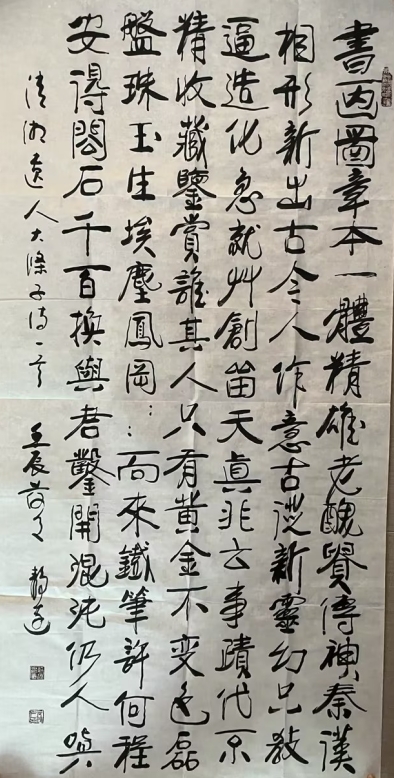 書画圖章本一體精雄老醜貴傳神秦漢
相形新出古今人作意古從新靈幻只教
逼造化急就艸創留天真非云事蹟代不
精收藏鑒賞誰其人只有黃金不变色磊
盤珠玉生埃塵鳳岡：：向來鐵筆許何程
安得閬石千百換與君鑿開混沌仍人嗔
清湘遠人大滌子詩一首 壬辰